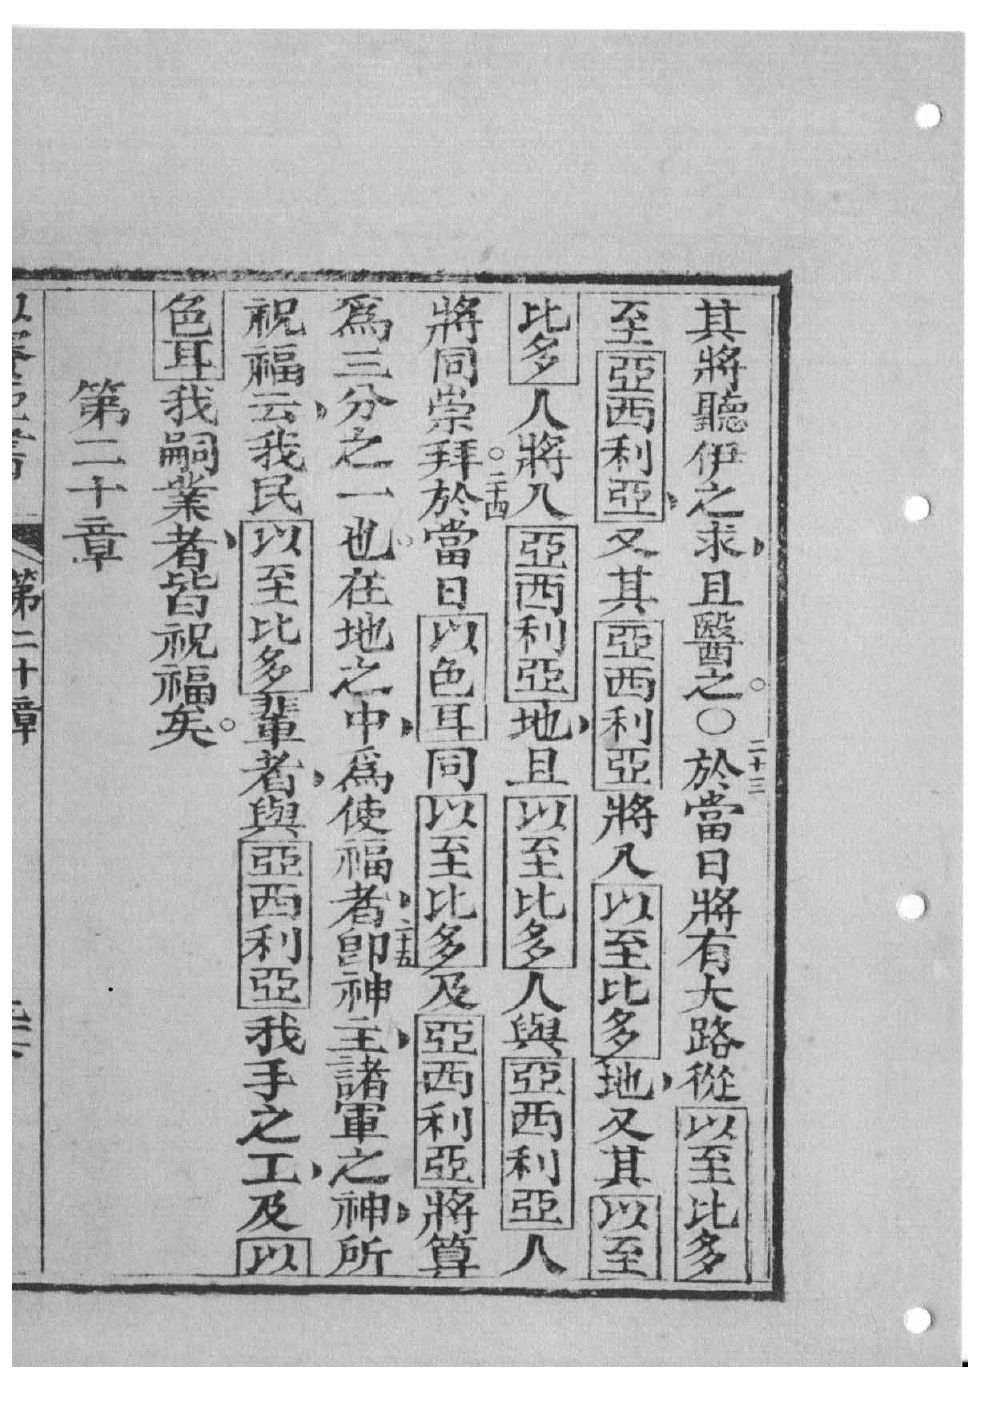 其將聽伊之求、且醫之。〇二十三於當日將有大路從以至比多
至亞西利亞、又其亞西利亞將入以至比多地、又其以至
比多人將入亞西利亞地、且以至比多人與亞西利亞人
將同崇拜。二十四於當日以色耳同以至比多及亞西利亞將算
為三分之一也。在地之中、為使福者、二十五即神主、諸軍之神、所
祝福云、我民以至比多輩者、與亞西利亞我手之工、及以
色耳我嗣業者、皆祝福矣。
第二十章
書 第二十章